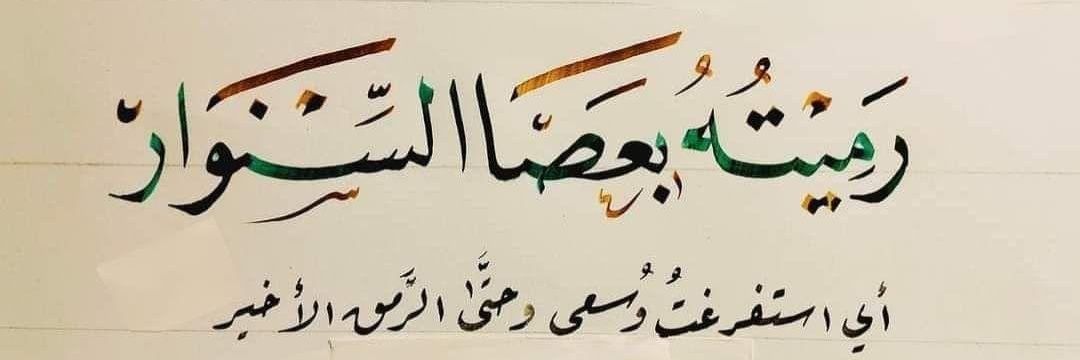 رَمَيْتُهُ بعَصَا السِّنْوَارْ
أي استفرغتُ وُسعى وحتَّى الرَّمق الأخير